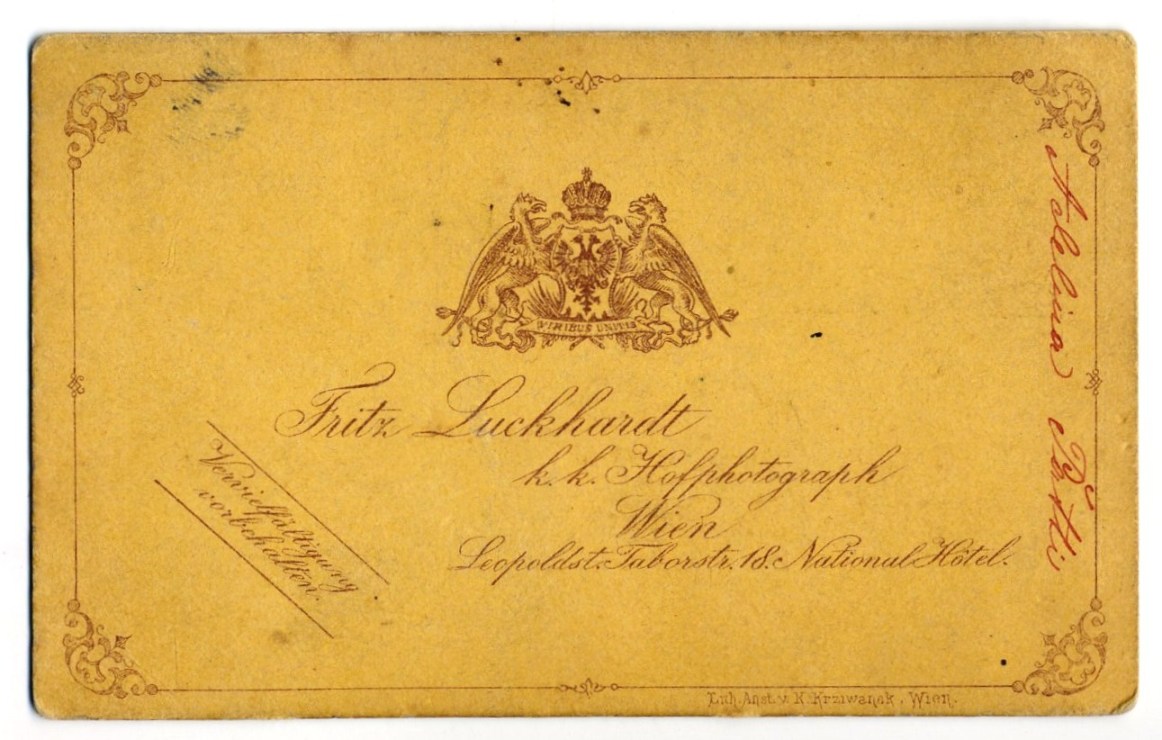 VIRIBUS UNITIS
Fritz Luckhardt
k. k. Hofphotograph
Wien
Leopoldst. Taborstr. 18. National Hôtel.
Vervielfältigung
vorbehalten.
Lith. Anst. v. K. Krziwanek, Wien.
Adelina Patti